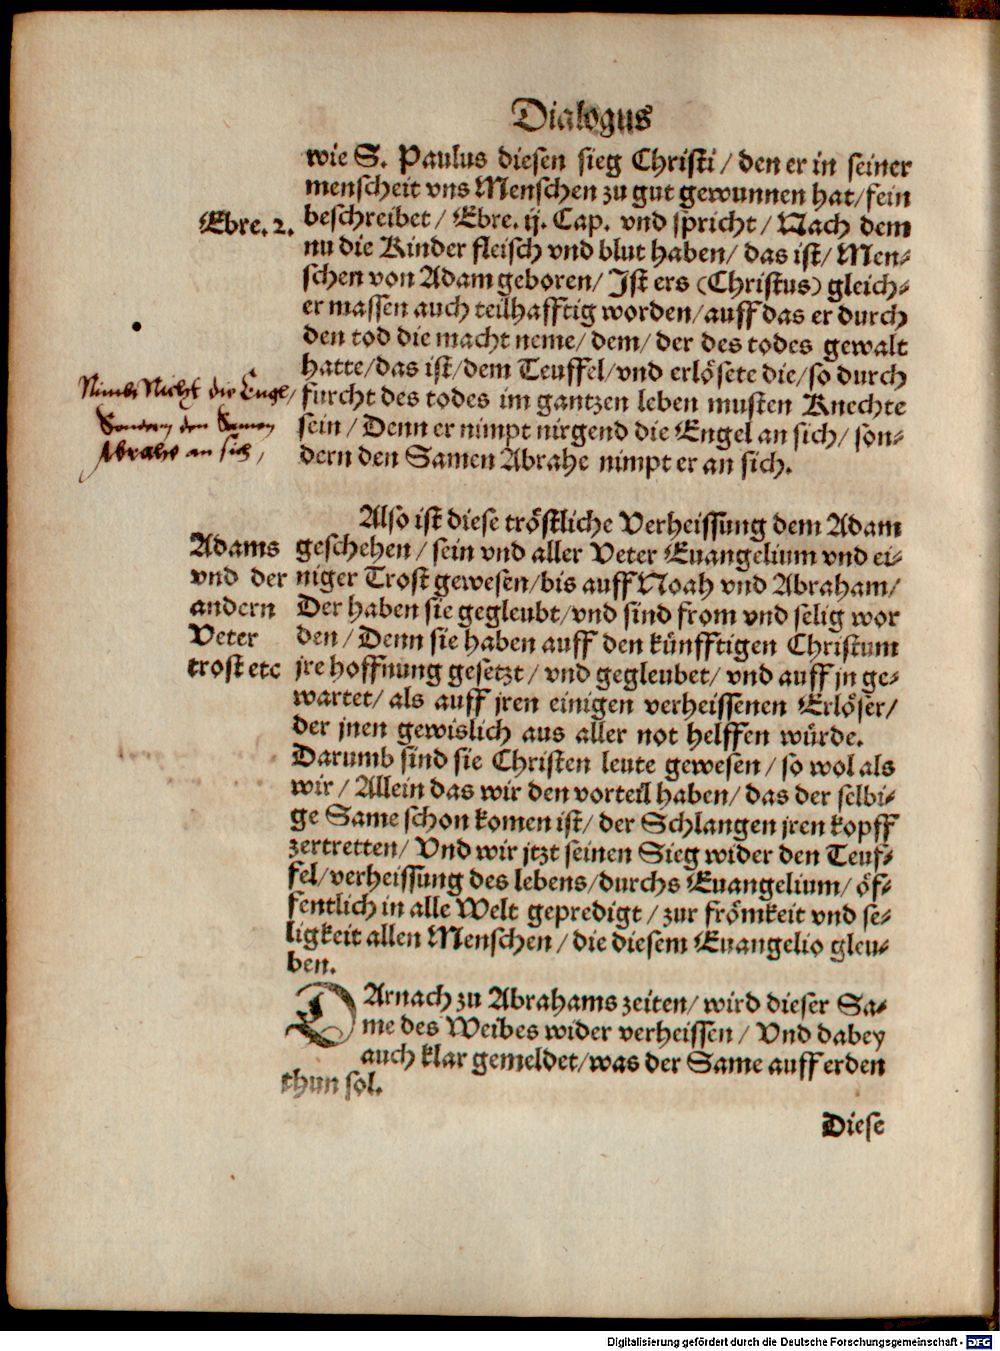 Dialogus
wie S. Paulus diesen sieg Christi / den er in seiner
menscheit vns Menschen zu gut gewunnen hat / fein
Ebre. 2.
beschreibet / Ebre. ij. Cap. vnd spricht / Nach dem
nu die Kinder fleisch vnd blut haben / das ist / Men-
schen von Adam geboren / Ist ers (Christus) gleich-
er massen auch teilhafftig worden / auff das er durch
den tod die macht neme / dem / der des todes gewalt
hatte / das ist / dem Teuffel / vnd erlösete die / so durch
furcht des todes im gantzen leben musten Knechte
sein / Denn er nimpt nirgend die Engel an sich / son-
dern den Samen Abrahe nimpt er an sich.
Nimbt Nicht die Engel /
Sondern den Samen
Abrahe an sich,
Also ist diese tröstliche Verheissung dem Adam
geschehen / sein vnd aller Veter Euangelium vnd ei-
niger Trost gewesen / bis auff Noah vnd Abraham /
Der haben sie gegleubt / vnd sind from vnd selig wor
den / Denn sie haben auff den künfftigen Christum
jre hoffnung gesetzt / vnd gegleubet / vnd auff jn ge-
wartet / als auff jren einigen verheissenen Erlöser /
der jnen gewislich aus aller not helffen würde.
Adams
vnd der
andern
Veter
trost etc
Darumb sind sie Christen leute gewesen / so wol als
wir / Allein das wir den vorteil haben / das der selbi-
ge Same schon komen ist / der Schlangen jren kopff
zertretten / Vnd wir jtzt seinen Sieg wider den Teuf-
fel / verheissung des lebens / durchs Euangelium / öf-
fentlich in alle Welt gepredigt / zur frömkeit vnd se-
ligkeit allen Menschen / die diesem Euangelio gleu-
ben.
DArnach zu Abrahams zeiten / wird dieser Sa-
me des Weibes wider verheissen / Vnd dabey
auch klar gemeldet / was der Same auff erden
thun sol.
Diese
Digitalisierung gefördert durch die Deutsche Forschungsgemeinschaft - DFG